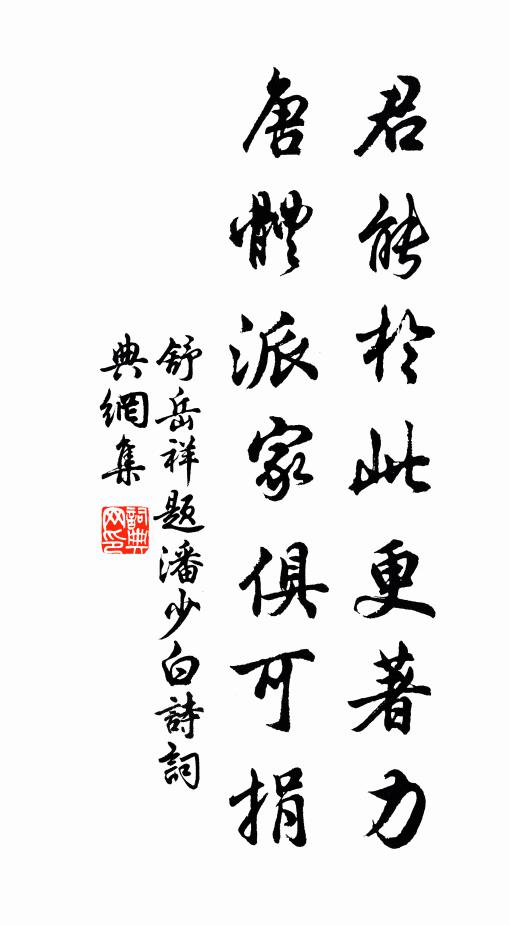 君能於此更著力
唐體派家俱可捐
舒岳祥題潘少白詩詞
典網集
詞典
网印